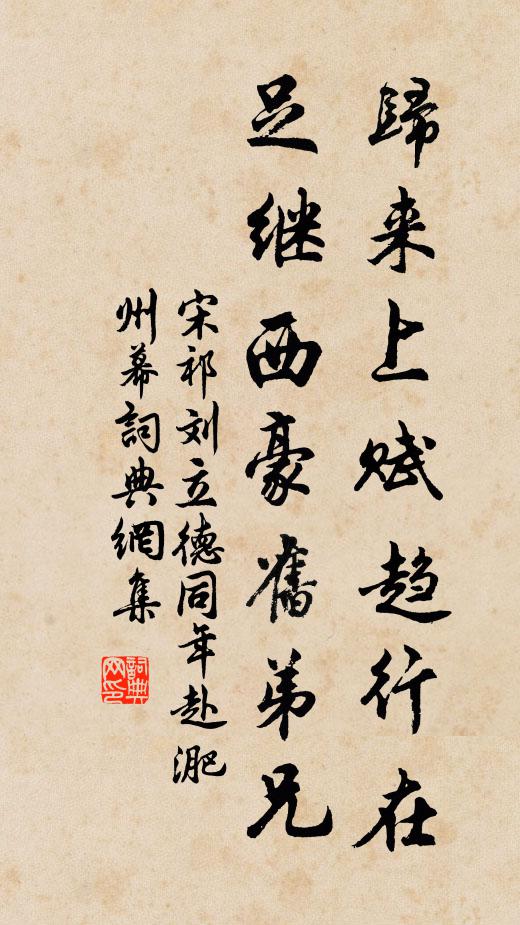 歸来上赋趋行在
足继西豪舊弟兄
宋祁刘立德同年赴淝
州幕詞典網集
詞典网印